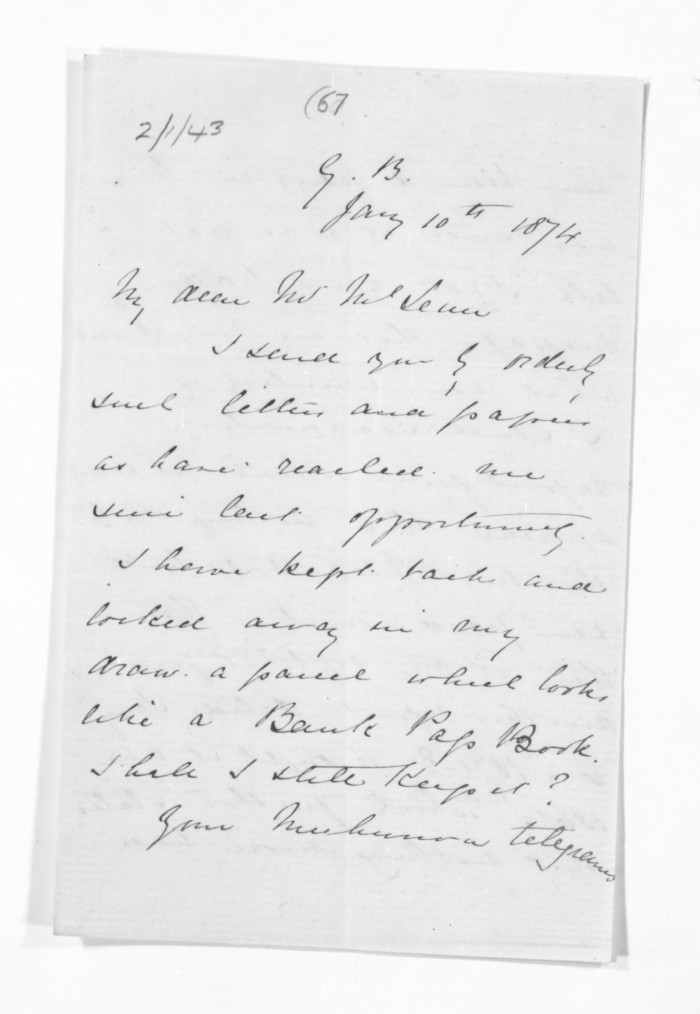 (67
2/1/43
G. B.
Jany 10th 1874
My dear Mr McLean
I send you by orderly
such letters and papers
as have reached me
since last opportunity.
I have kept back and
locked away in my
draw a parcel which looks
like a Bank Pass Book.
Shall I still keep it?
Your telegrams